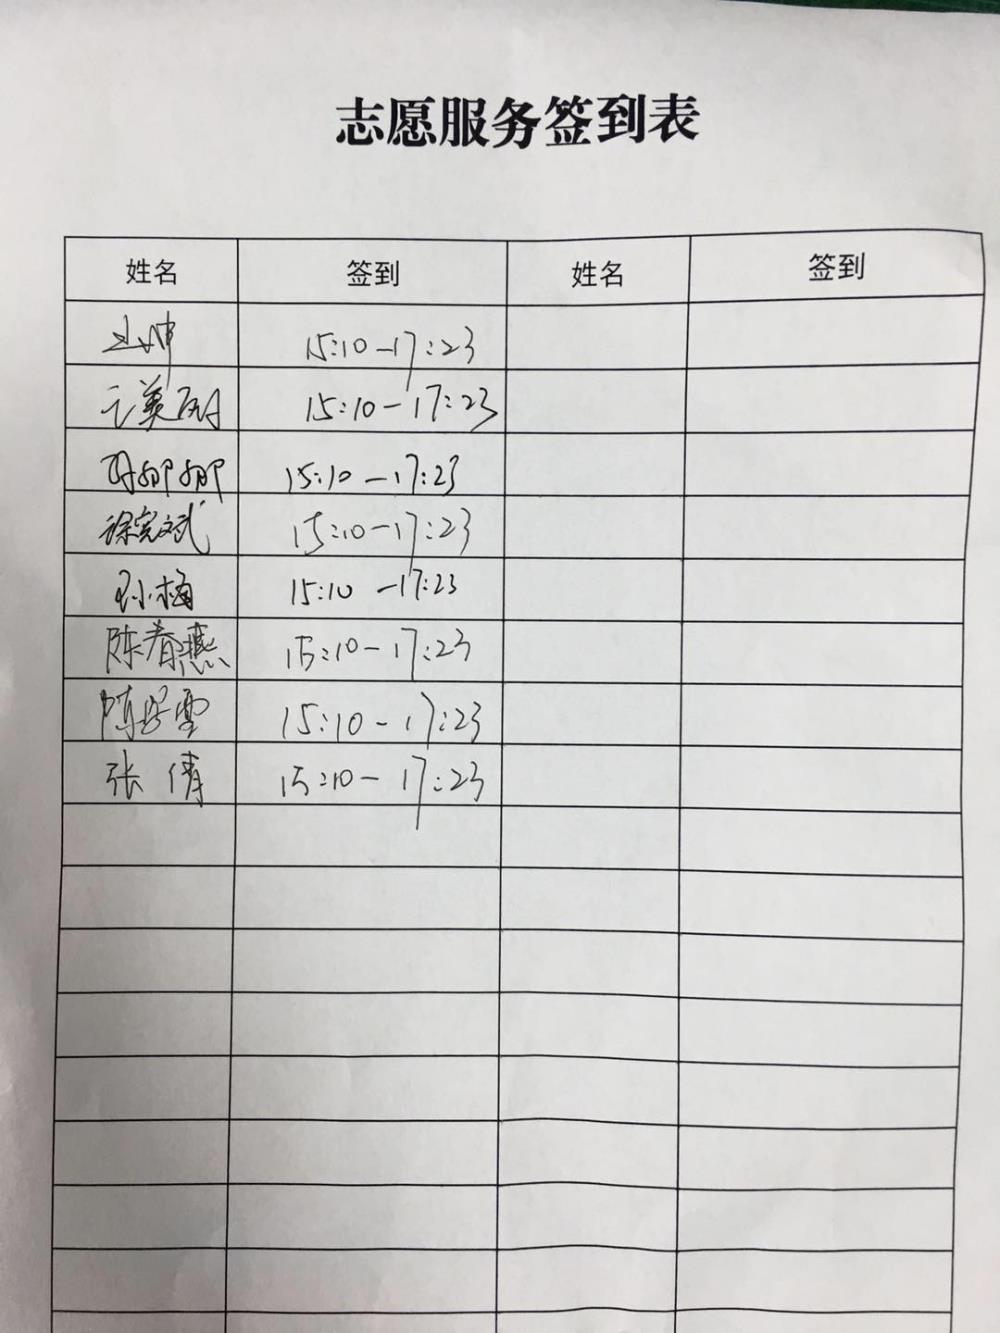 志愿服务签到表
姓名 签到 姓名 签到
15:10-17:23
15:10-17:23
15:10-17:23
徐宪斌 15:10-17:23
孙梅 15:10-17:23
陈春燕 15:10-17:23
陈 雪 15:10-17:23
张倩 15:10-17:23